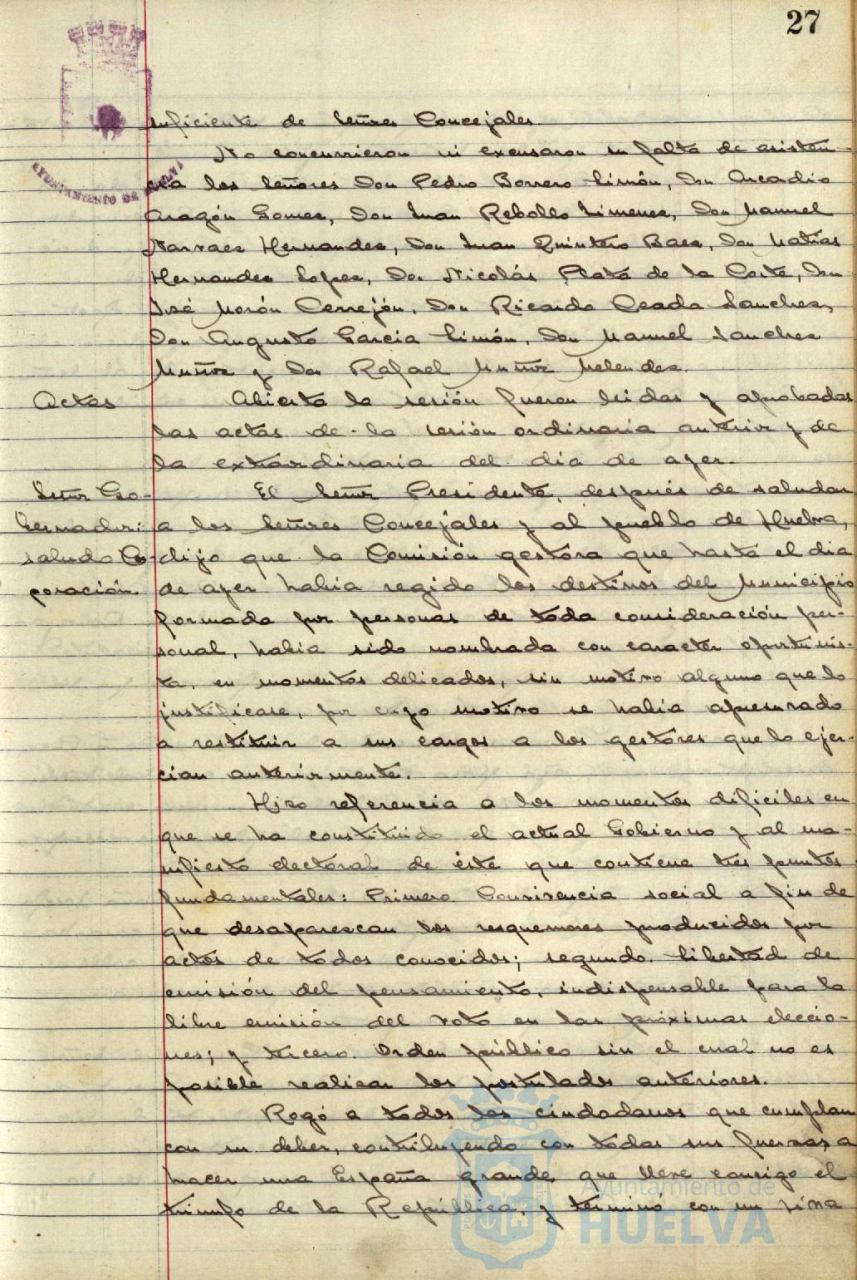 27
suficiente de Señores Concejales.
No concurrieron ni excusaron su falta de asisten-
cia los Señores Don Pedro Borrero Limón, Don Arcadio
Aragón Gomez, Don Juan Rebollo Jimenez, Don Manuel
Narvaez Hernandez, Don Juan Quintero Baez, Don Matías
Hernandez Lopez, Don Nicolás Plata de la Corte, Don
José Morón Cerrejón, Don Ricardo Ceada Sanchez,
Don Augusto Garcia Limón, Don Manuel Sanchez
Muñoz y Don Rafael Muñoz Melendez.
Actas
Abierta la sesión fueron leidas y aprobadas
las actas de la sesión ordinaria anterior y de
la extraordinaria del dia de ayer.
Señor Go-
bernador:
saluda Co-
poración.
El Señor Presidente, después de saludar
a los Señores Concejales y al pueblo de Huelva,
dijo que la Comisión gestora que hasta el dia
de ayer habia regido los destinos del Municipio
formada por personas de toda consideración per-
sonal, habia sido nombrada con caracter oportunis-
ta, en momentos delicados, sin motivo alguno que lo
justificase, por cuyo motivo se habia apresurado
a restituir a sus cargos a los gestores que lo ejer-
cian anteriormente.
Hizo referencia a los momentos dificiles en
que se ha constituido el actual Gobierno y al ma-
nifiesto electoral de éste que contiene tres puntos
fundamentales: Primero Convivencia social a fin de
que desaparezcan los resquemores producidos por
actos de todos conocidos; segundo. Libertad de
emisión del pensamiento, indispensable para la
libre emisión del voto en las próximas eleccio-
nes; y tercero. Orden público sin el cual no es
posible realizar los postulados anteriores.
Rogó a todos los ciudadanos que cumplan
con su deber, contribuyendo con todas sus fuerzas a
hacer una España grande que lleve consigo el
triunfo de la República, y terminó con un viva
AYUNTAMIENTO DE HUELVA
Ayuntamiento de
HUELVA